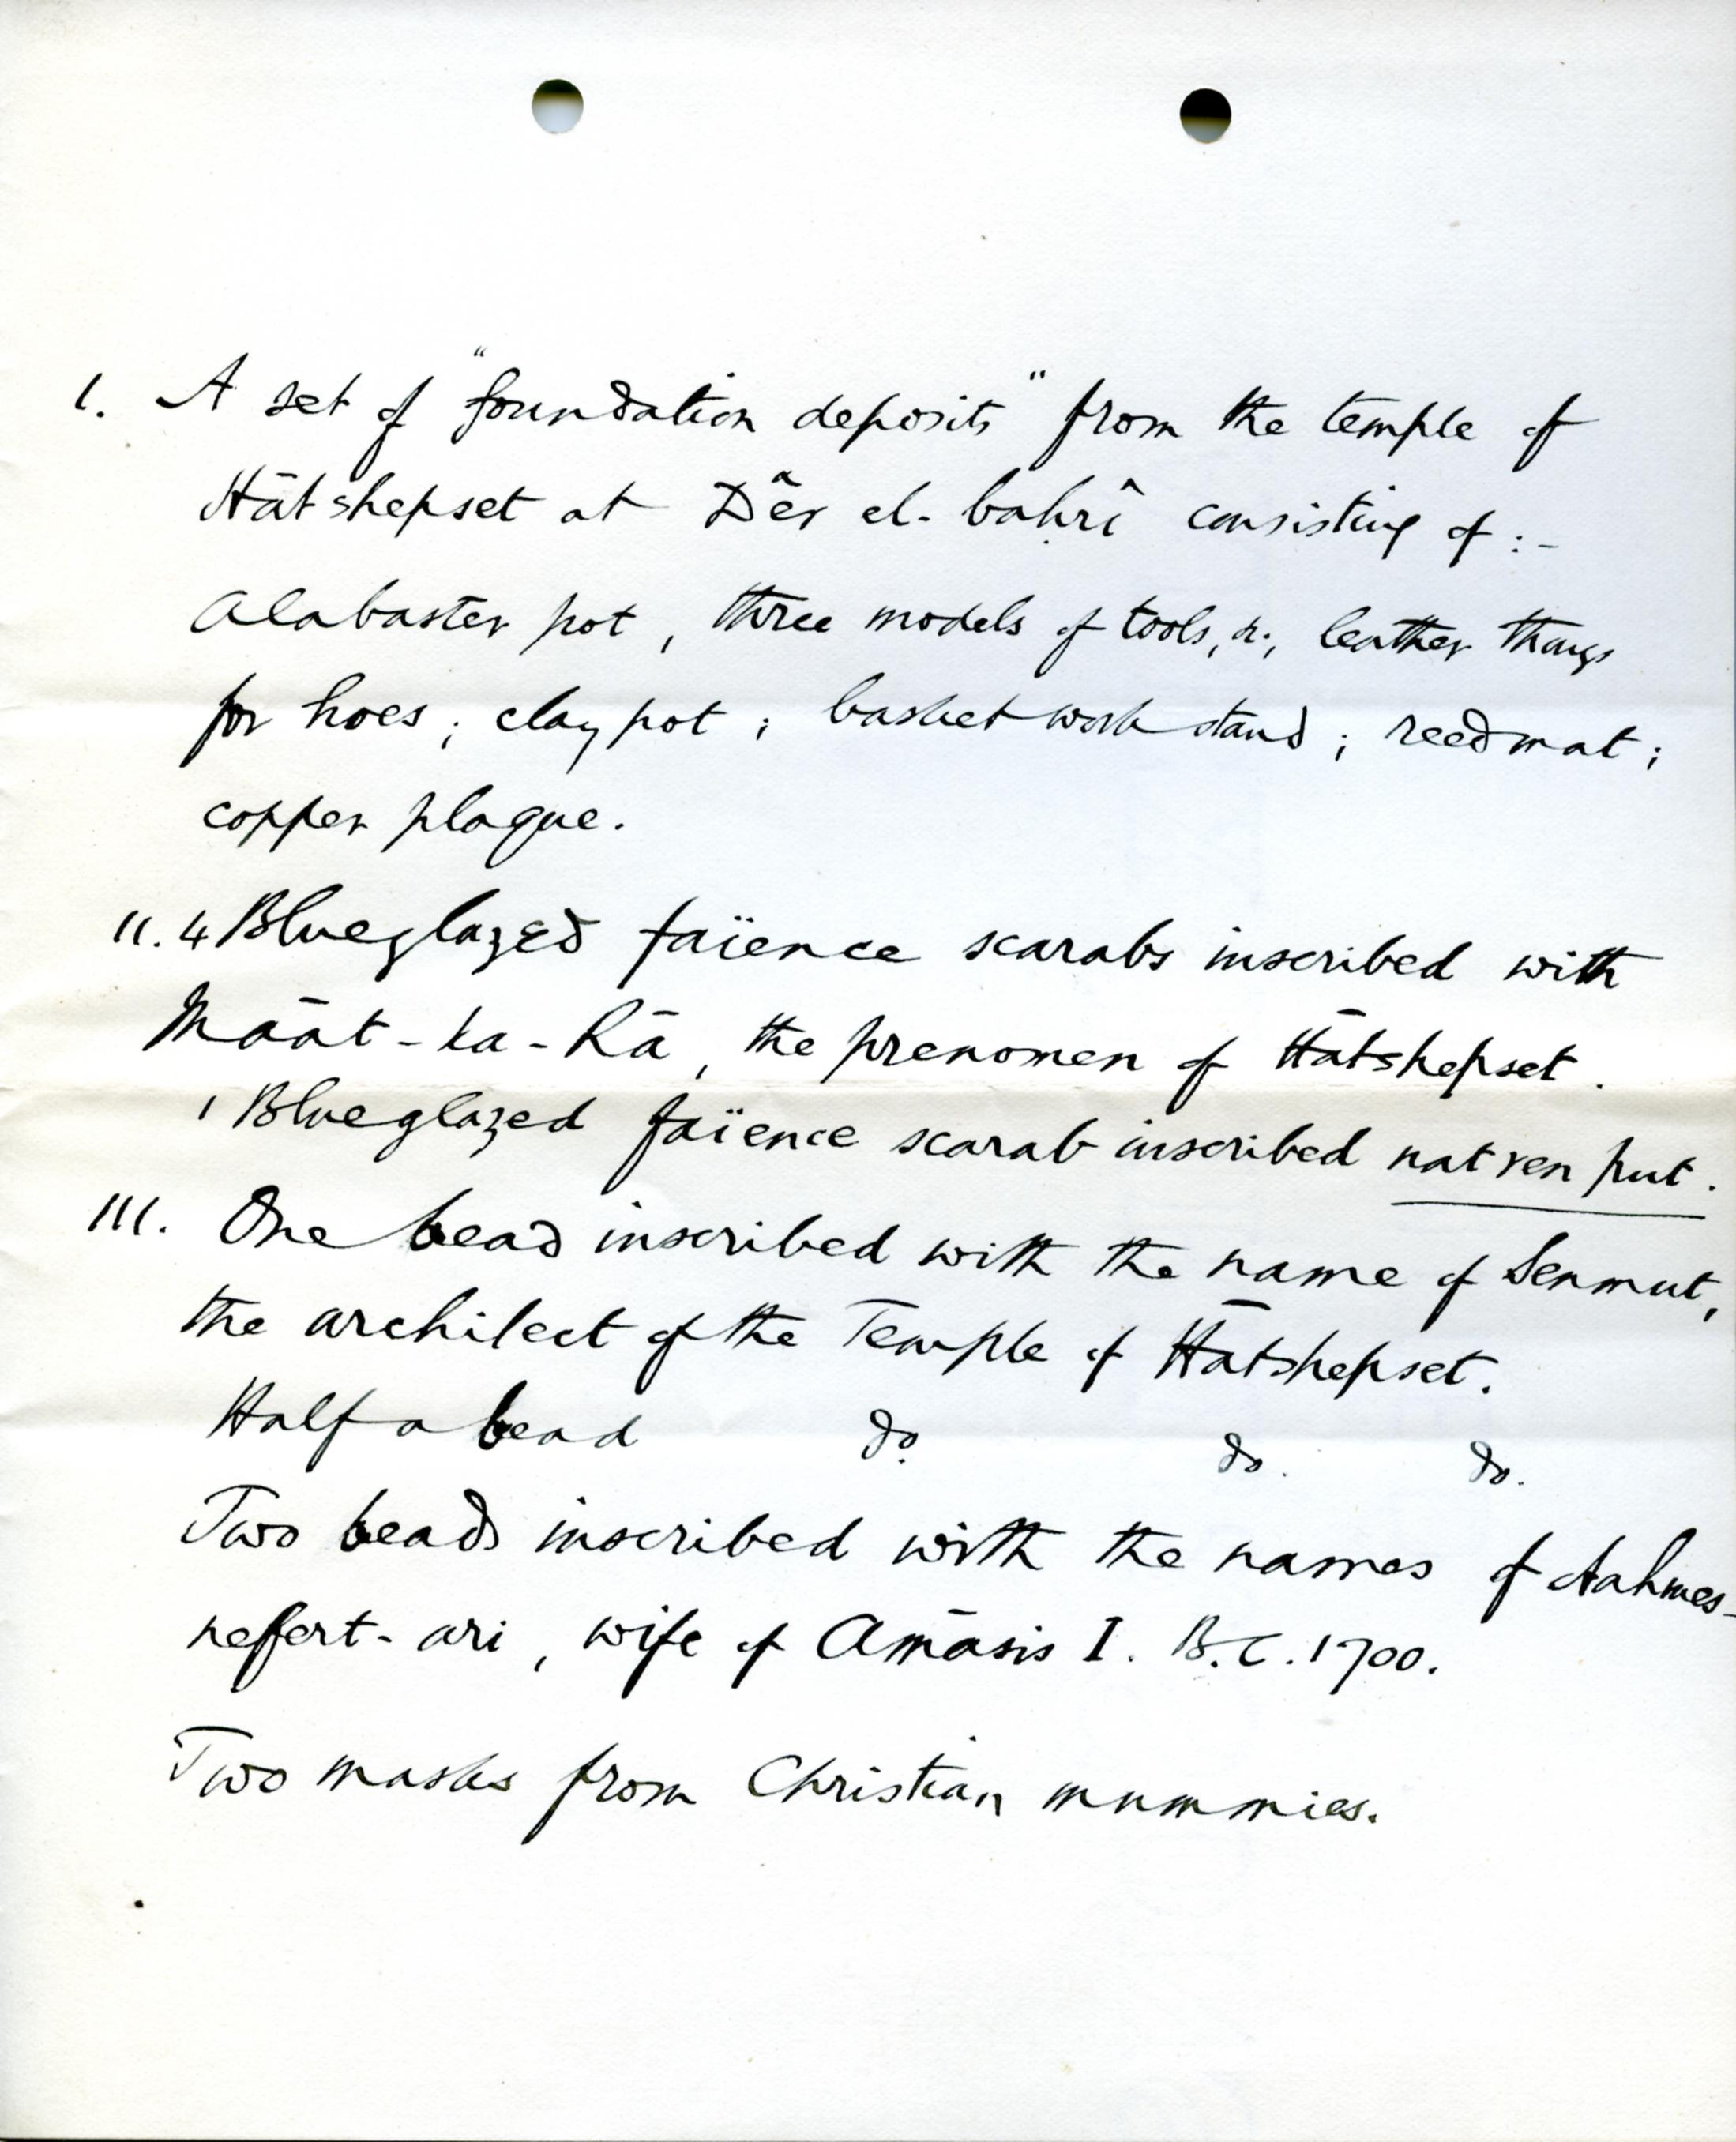 I. A set of "foundation deposits" from the temple of
Hātshepset at Dêr el-baḥrî consisting of :-
Alabaster pot, three models of tools, &; leather thongs
for hoes; clay pot; basket work stand; reed mat;
copper plaque.
II. 4 Blue glazed faïence scarabs inscribed with
Māāt-ka-Rā, the prenomen of Hātshepset.
1 Blue glazed faïence scarab inscribed
III. One bead inscribed with the name of Senmut,
the architect of the Temple of Hātshepset.
Half a bead do. do. do.
Two beads inscribed with the names of Aahmes-
nefert-ari, wife of Amāsis I. B.C. 1700.
Two masks from Christian mummies.